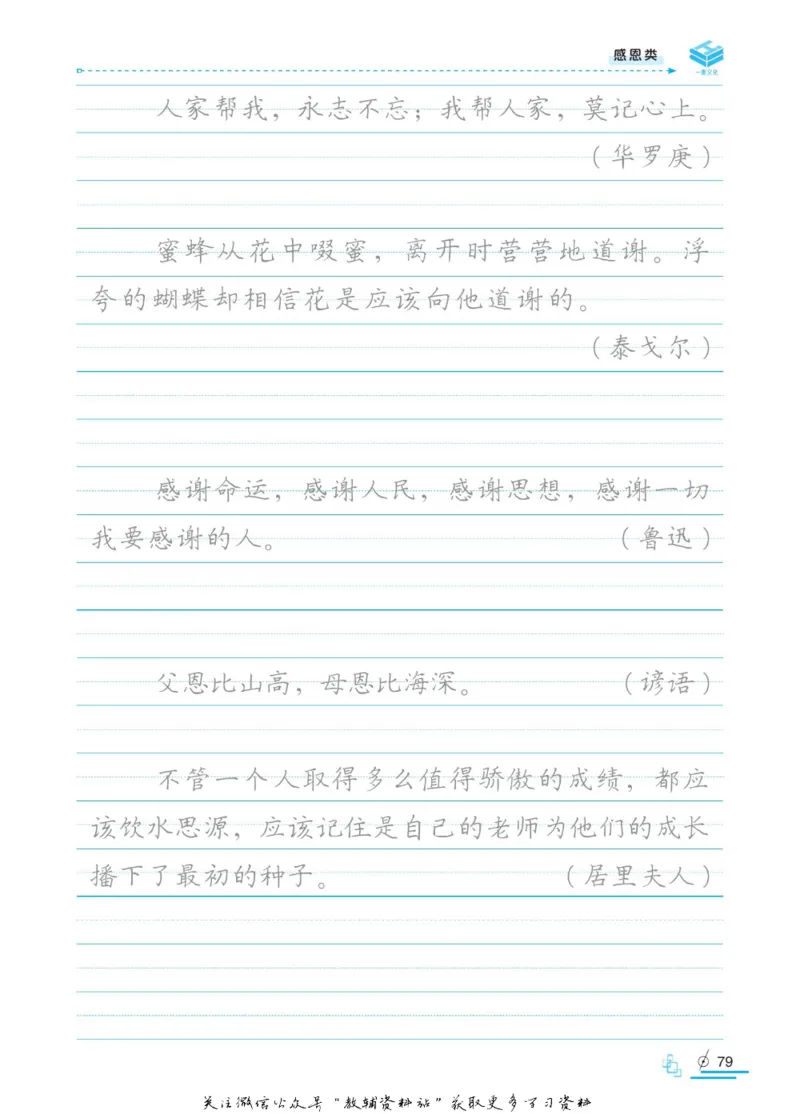 感恩类
一本文化
人家帮我，永志不忘；我帮人家，莫记心上。
（华罗庚）
蜜蜂从花中啜蜜，离开时营营地道谢。浮
夸的蝴蝶却相信花是应该向他道谢的。
（泰戈尔）
感谢命运，感谢人民，感谢思想，感谢一切
我要感谢的人。（鲁迅）
父恩比山高，母恩比海深。（谚语）
不管一个人取得多么值得骄傲的成绩，都应
该饮水思源，应该记住是自己的老师为他们的成长
播下了最初的种子。（居里夫人）
79
关注微信公众号“教辅资料站”获取更多学习资料